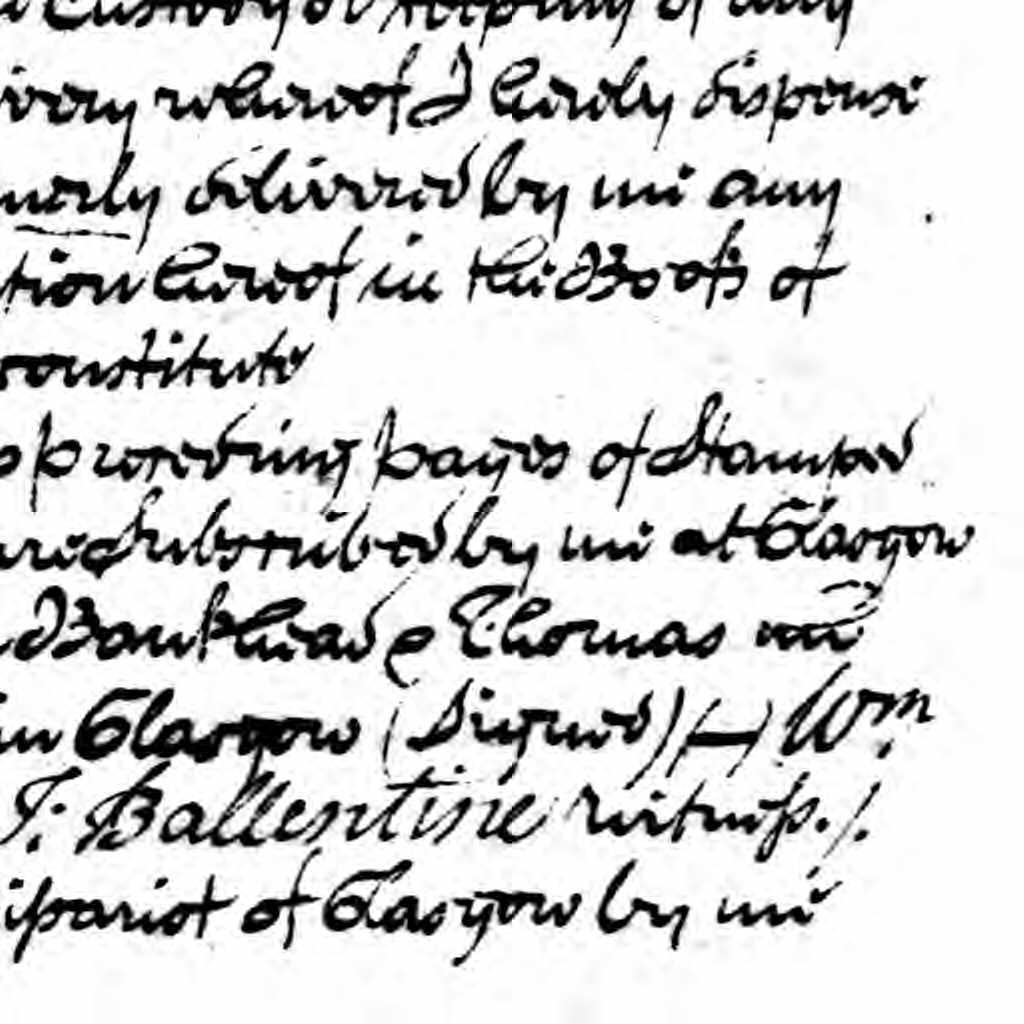 Custody or keeping of any
very whereof I hereby dispense
merly delivered by me any
tion hereof in the Books of
constitute
preceeding pages of Stamped
are Subscribed by me at Glasgow
Bankhead & Thomas
in Glasgow (Signed) (—) Wm
T: Ballentine witness. /.
issariot of Glasgow by me